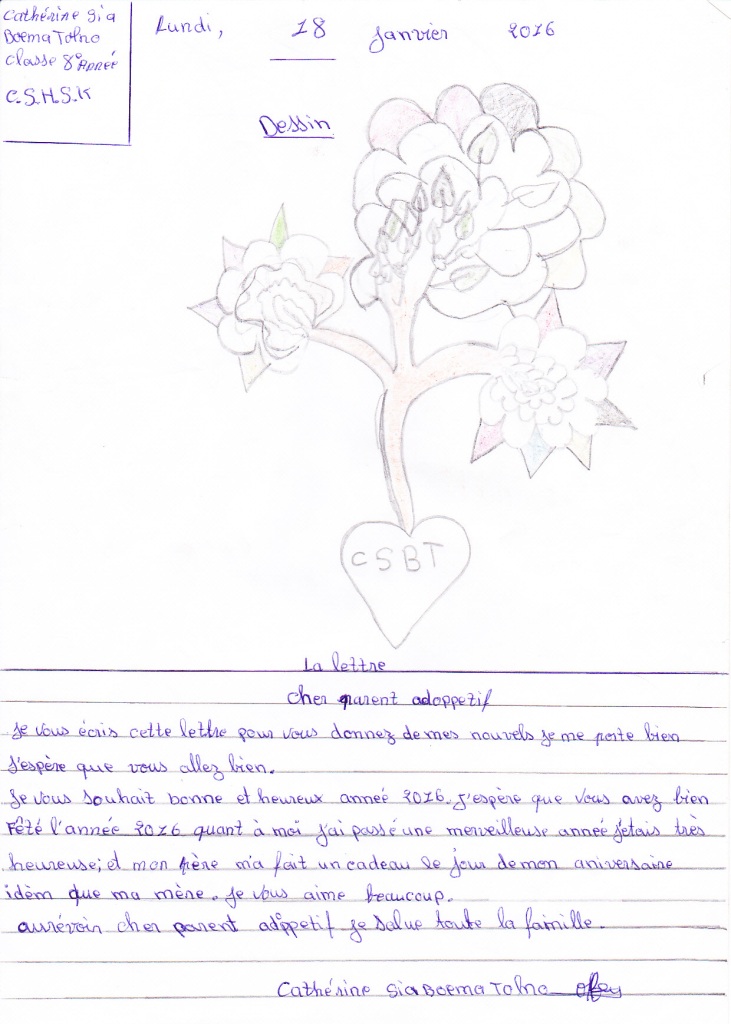 Cathérine Sia
Boema Tolno
Classe 8e Année
C.S.H.S.K
Lundi, 18 Janvier 2016
Dessin
CSBT
La lettre
Cher parent adoppetif
Je vous écris cette lettre pour vous donnez de mes nouvels je me porte bien
J'espère que vous allez bien.
Je vous souhait bonne et heureux année 2016. J'espère que vous avez bien
Fêté l'année 2016 quant à moi j'ai passé une merveilleuse année j'etais très
heureuse; et mon père m'a fait un cadeau le jour de mon aniversaire
idèm que ma mère. Je vous aime beaucoup.
aurévoir cher parent adoppetif je salue toute la famille.
Cathérine Sia Boema Tolno